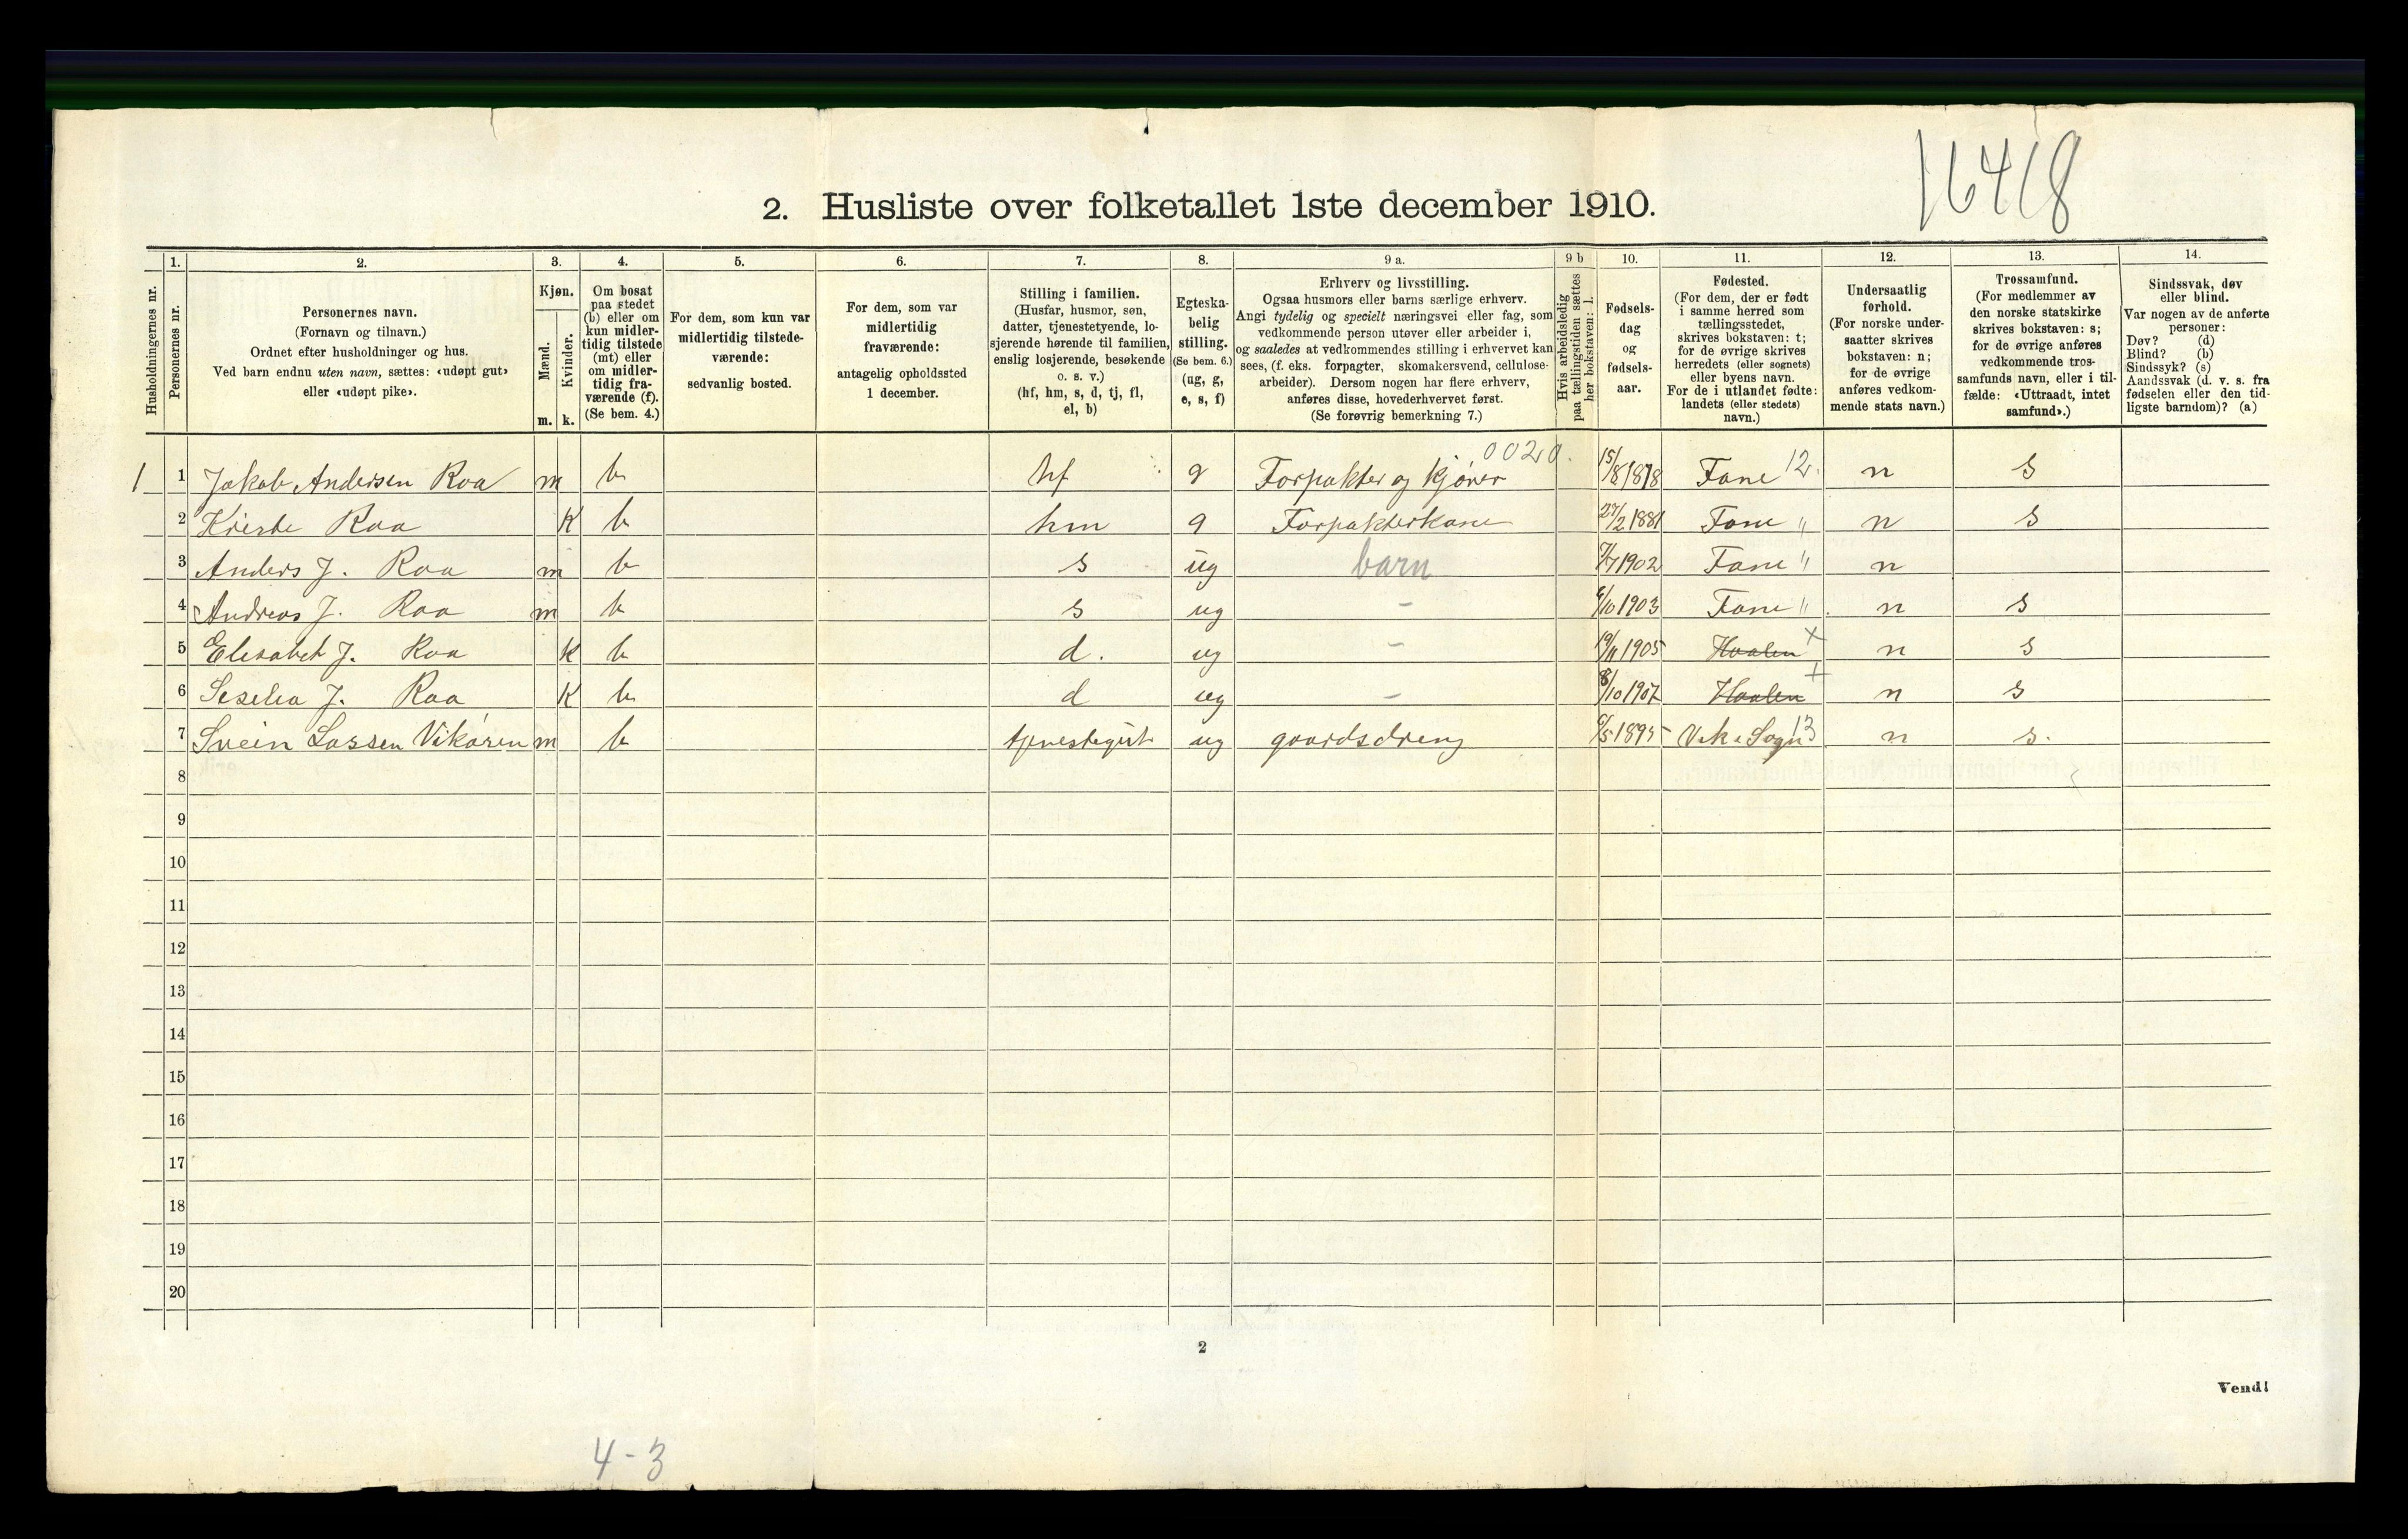 16418
2. Husliste over folketallet 1ste december 1910.
Husholdningernes nr.
1.
Personernes nr.
2.
Personernes navn.
(Fornavn og tilnavn.)
Ordnet efter husholdninger og hus.
Ved barn endnu uten navn, sættes: «udøpt gut»
eller «udøpt pike».
3.
Kjøn.
Mænd.
Kvinder.
m. k.
4.
Om bosat
paa stedet
(b) eller om
kun midler-
tidig tilstede
(mt) eller
om midler-
tidig fra-
værende (f).
(Se bem. 4.)
5.
For dem, som kun var
midlertidig tilstede-
værende:
sedvanlig bosted.
6.
For dem, som var
midlertidig
fraværende:
antagelig opholdssted
1 december.
7.
Stilling i familien.
(Husfar, husmor, søn,
datter, tjenestetyende, lo-
sjerende hørende til familien,
enslig losjerende, besøkende
o. s. v.)
(hf, hm, s, d, tj, fl,
el, b)
8.
Egteska-
belig
stilling.
(Se bem. 6.)
(ug, g,
e, s, f)
9 a.
Erhverv og livsstilling.
Ogsaa husmors eller barns særlige erhverv.
Angi tydelig og specielt næringsvei eller fag, som
vedkommende person utøver eller arbeider i,
og saaledes at vedkommendes stilling i erhvervet kan
sees, (f. eks. forpagter, skomakersvend, cellulose-
arbeider). Dersom nogen har flere erhverv,
anføres disse, hovederhvervet først.
(Se forøvrig bemerkning 7.)
9 b
Hvis arbeidsledig
paa tællingstiden sættes
her bokstaven: l.
10.
Fødsels-
dag
og
fødsels-
aar.
11.
Fødested.
(For dem, der er født
i samme herred som
tællingsstedet,
skrives bokstaven: t;
for de øvrige skrives
herredets (eller sognets)
eller byens navn.
For de i utlandet fødte:
landets (eller stedets)
navn.)
12.
Undersaatlig
forhold.
(For norske under-
saatter skrives
bokstaven: n;
for de øvrige
anføres vedkom-
mende stats navn.)
13.
Trossamfund.
(For medlemmer av
den norske statskirke
skrives bokstaven: s;
for de øvrige anføres
vedkommende tros-
samfunds navn, eller i til-
fælde: «Uttraadt, intet
samfund».)
14.
Sindssvak, døv
eller blind.
Var nogen av de anførte
personer:
Døv? (d)
Blind? (b)
Sindssyk? (s)
Aandssvak (d. v. s. fra
fødselen eller den tid-
ligste barndom)? (a)
0020.
1 1 Jakob Andersen Roa m b hf g Forpakter og kjører 15/8 1878 Fane 12. n s
2 Kriste Roa K b hm g Forpakterkone 27/2 1881 Fane " n s
3 Anders J. Roa m b s ug barn 7/7 1902 Fane " n
4 Andreas J. Roa m b s ug - 6/10 1903 Fane " n s
5 Elisabet J. Roa K b d. ug - 19/11 1905 Haalen x n s
6 Seselia J. Roa K b d ug - 8/10 1907 Haalen + n s
7 Svein Larsen Vikøren m b tjenestegut ug gaardsdreng 6/5 1895 Vik i Sogn 13 n s.
8
9
10
11
12
13
14
15
16
17
18
19
20
2
Vend!
4-3